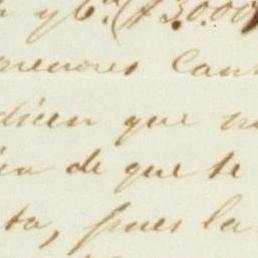 y Cª. ($30.00
menores can
dicen que n
de que se
ta, pues la